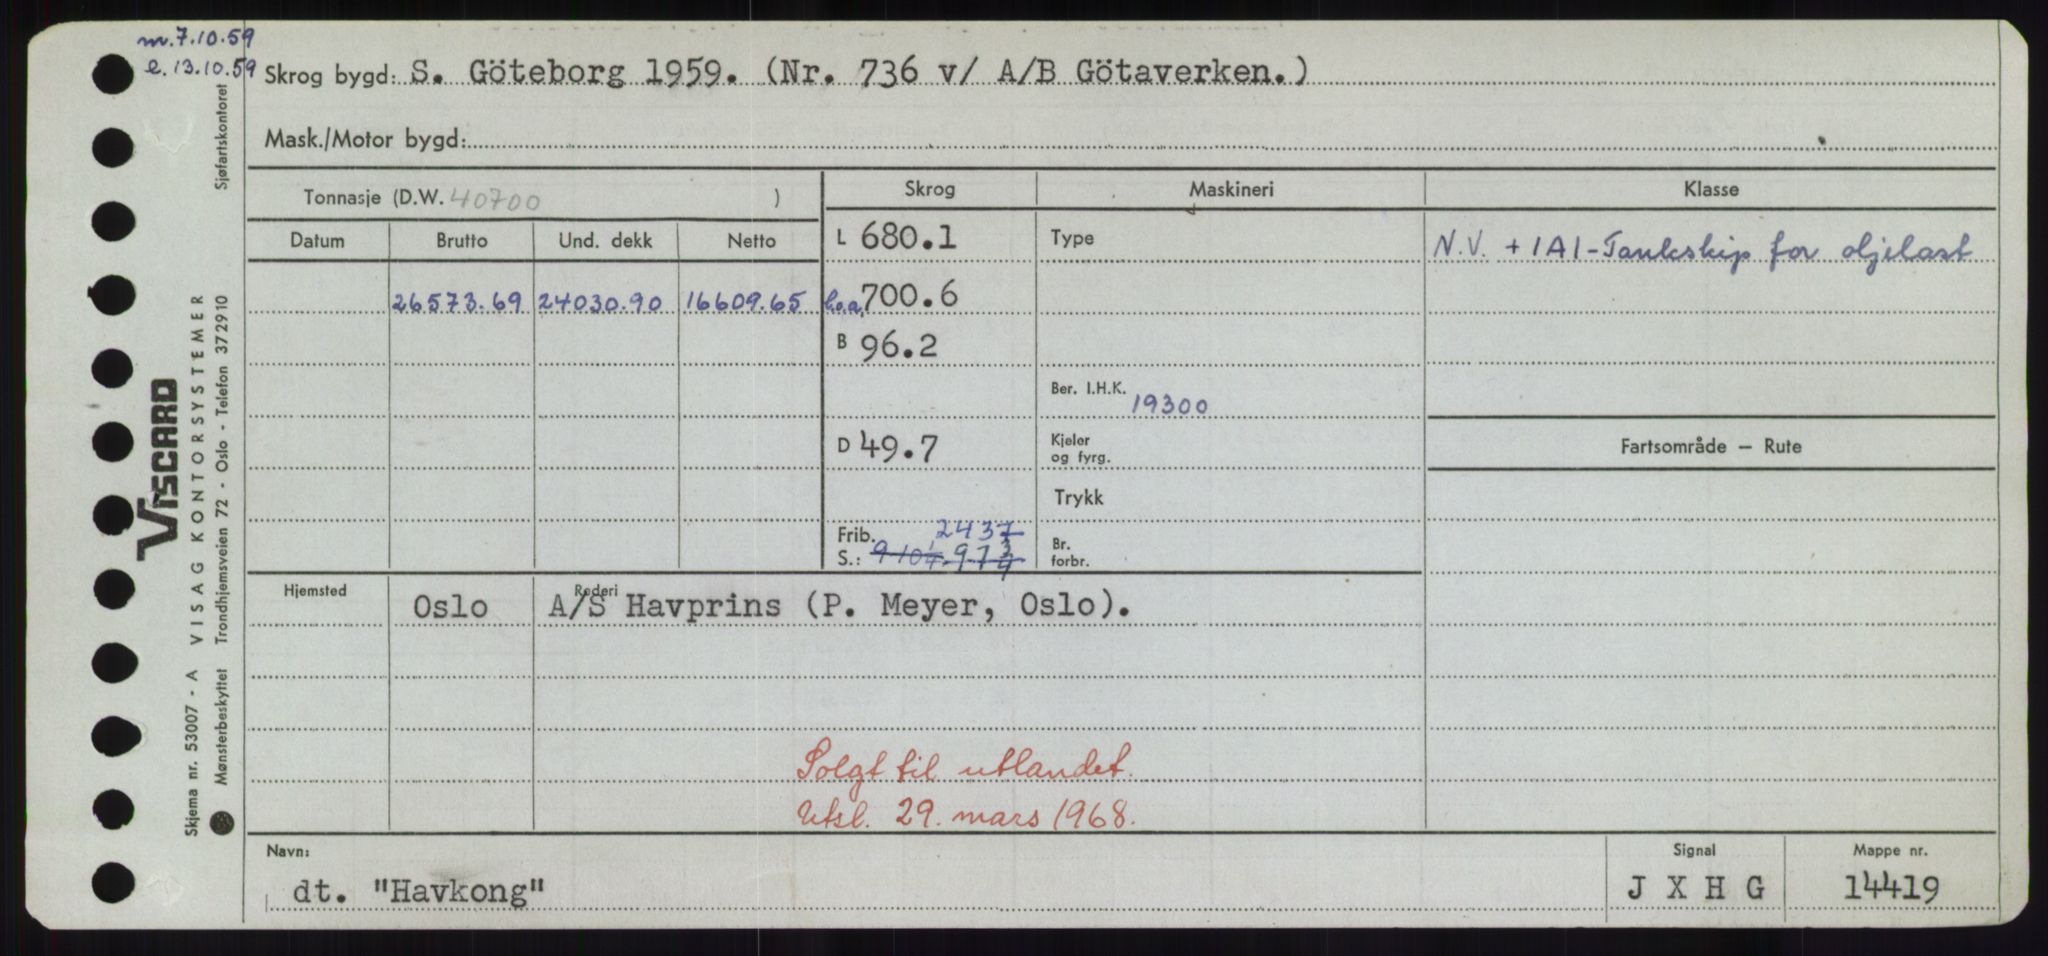 m. 7.10.59
e. 13.10.59
Skrog bygd: S. Göteborg 1959. (Nr. 736 v/ A/B Götaverken.)
Mask./Motor bygd:
Tonnasje (D.W. 40700 )
Skrog
Maskineri
Klasse
Datum
Brutto
Und. dekk
Netto
L 680.1
Type
N.V. + 1A1 - Tankskip for oljelast
26573.69
24030.90
16609.65
l.o.a. 700.6
B 96.2
Ber. I.H.K.
19300
D 49.7
Kjeler
og fyrg.
Fartsområde — Rute
Trykk
Frib. 2437
S.:
Br.
forbr.
Hjemsted
Rederi
Oslo
A/S Havprins (P. Meyer, Oslo).
Solgt til utlandet.
Utsl. 29. mars 1968.
Navn:
dt. "Havkong"
Signal
J X H G
Mappe nr.
14419
Viscard
Skjema nr. 53007 - A VISAG KONTORSYSTEMER
Mønsterbeskyttet Trondhjemsveien 72 - Oslo - Telefon 372910 Sjøfartskontoret